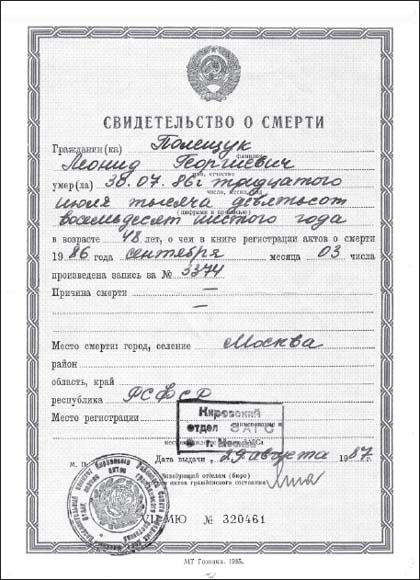 СВИДЕТЕЛЬСТВО О СМЕРТИ
Гражданин(ка) Полещук
фамилия
Леонид Георгиевич
имя, отчество
умер(ла) 30.07.86г тридцатого
число, месяц, год
июля тысяча девятьсот
(цифрами и прописью)
восемьдесят шестого года
в возрасте 48 лет, о чем в книге регистрации актов о смерти
1986 года сентября месяца 03 числа
произведена запись за № 3374
Причина смерти —
—
Место смерти: город, селение Москва
район
область, край
республика РСФСР
Место регистрации Кировский
отдел ЗАГС
г. Москвы
Дата выдачи „29 августа 1987 г.
М. П. Заведующий отделом (бюро)
записи актов гражданского состояния
VII-МЮ № 320461
МТ Гознака. 1985.